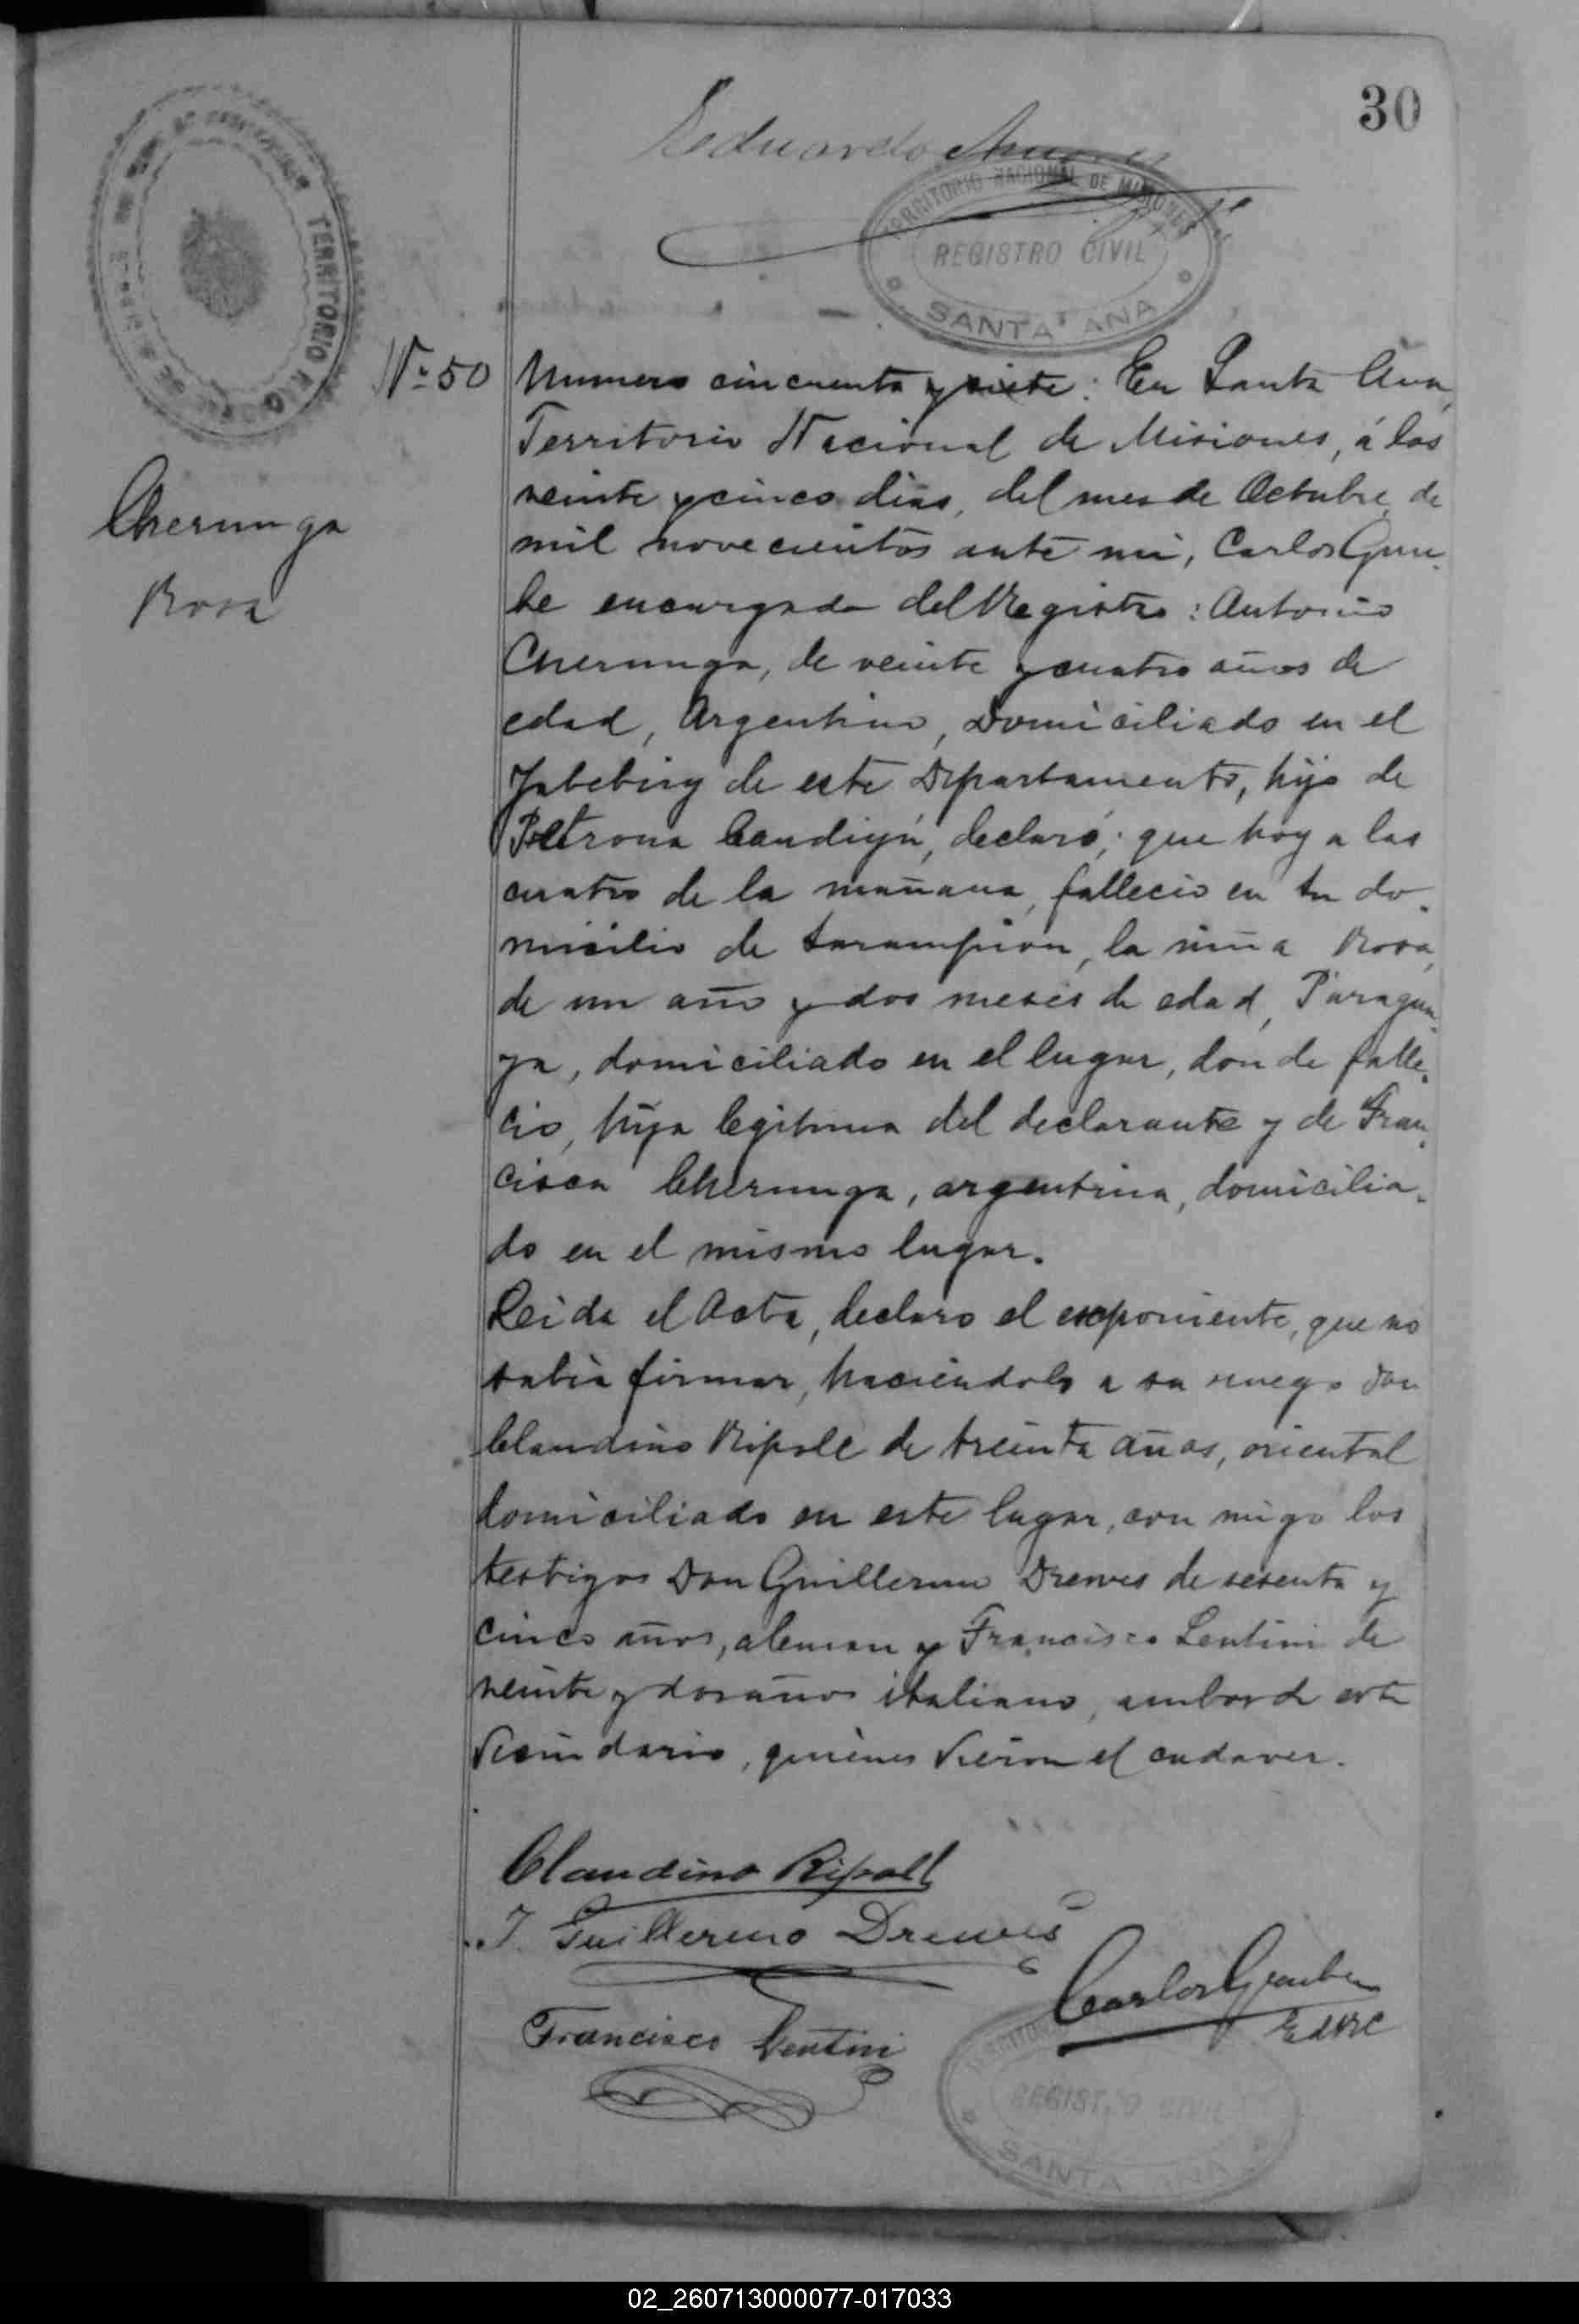 30
TERRITORIO NACIONAL DE MISIONES
REGISTRO CIVIL
SANTA ANA
TERRITORIO
Nº 50
Cherunga
Rosa
Numero cincuenta y siete: En Santa Ana,
Territorio Nacional de Misiones, á los
veinte y cinco dias, del mes de Octubre, de
mil novecientos ante mi, Carlos Gru-
be encargado del Registro: Antonio
Cherunga, de veinte y cuatro años de
edad, Argentino, Domiciliado en el
Yabebiry de este Departamento, hijo de
Petrona Candiyú, declaró; que hoy a las
cuatro de la mañana, fallecio en su do-
micilio de sarampion, la niña Rosa,
de un año y dos meses de edad, Paragua-
ya, domiciliado en el lugar, donde falle-
cio, hija legitima del declarante y de Fran-
cisca Cherunga, argentina, domicilia-
do en el mismo lugar.
Leida el Acta, declaro el exponiente, que no
sabia firmar, haciendolo a su ruego don
Claudino Ripoll de treinta años, oriental
domiciliado en este lugar, con migo los
testigos Don Guillermo Drewes de sesenta y
cinco años, aleman y Francisco Lentini de
veinte y dos años italiano, ambos de este
Vecindario, quienes vieron el cadaver.
Claudino Ripoll
J. Guillermo Drewes
Carlos Grube
Francisco Lentini
REGISTRO CIVIL
SANTA ANA
02_260713000077-017033